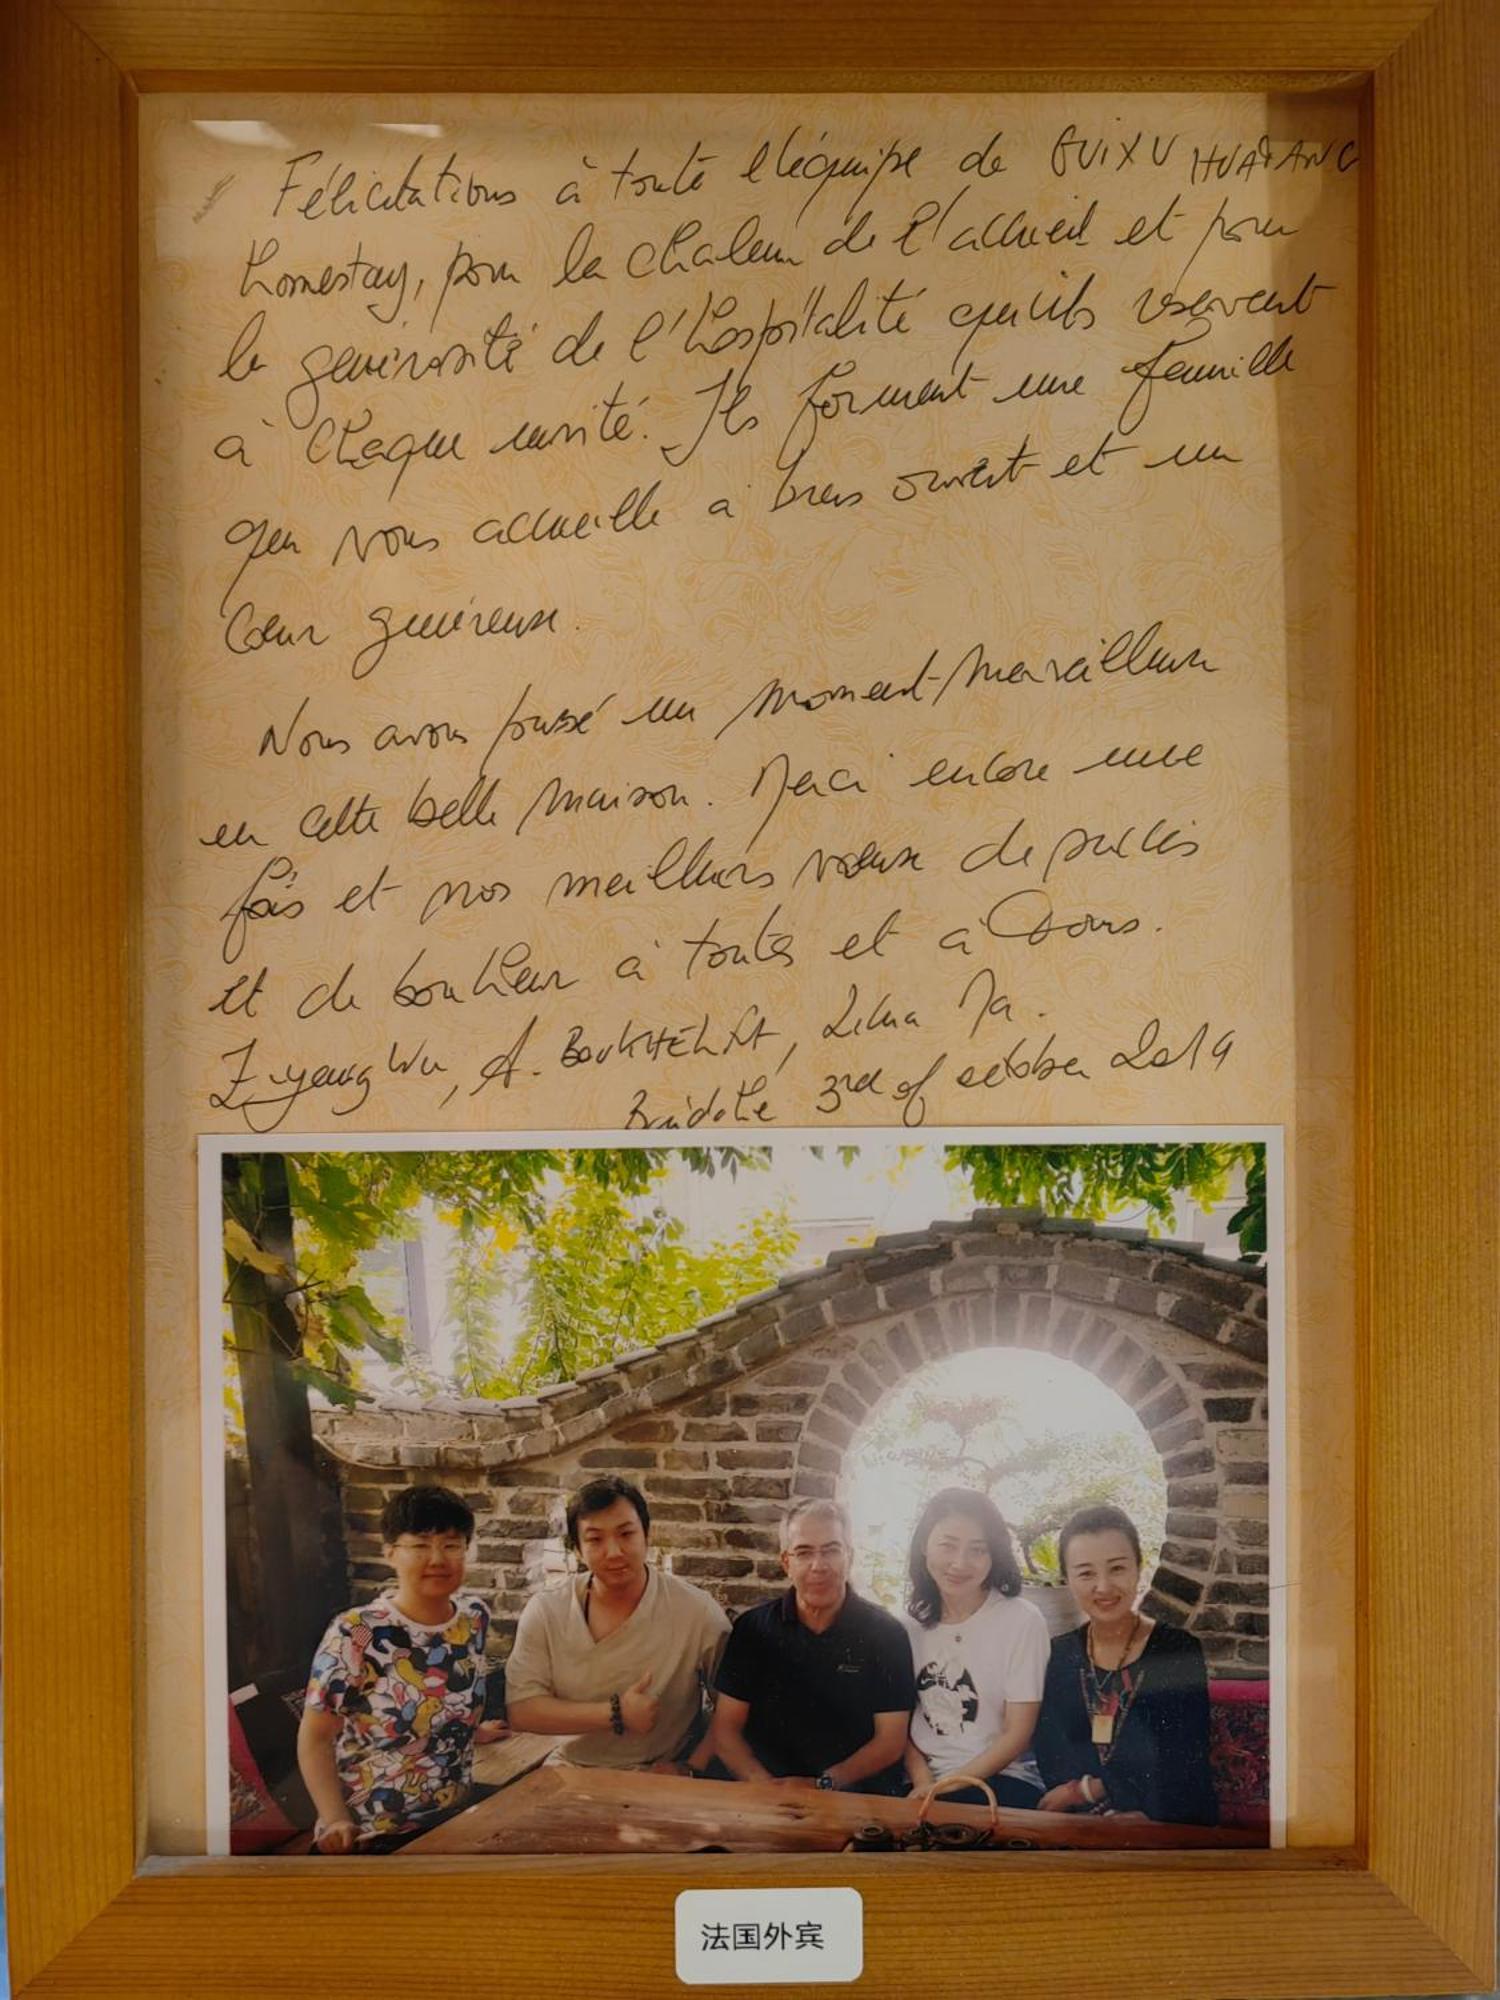 Félicitations à toute l'équipe de GUIXU HUATANG
homestay, pour la chaleur de l'accueil et pour
la générosité de l'hospitalité qu'ils réservent
à chaque invité. Ils forment une famille
qui vous accueille à bras ouvert et un
Cœur généreux.
Nous avons passé un moment merveilleux
en cette belle maison. Merci encore une
fois et nos meilleurs vœux de succès
et de bonheur à toutes et à tous.
Ziyang Wu, A. , Ma.
3rd of october 2019
法国外宾